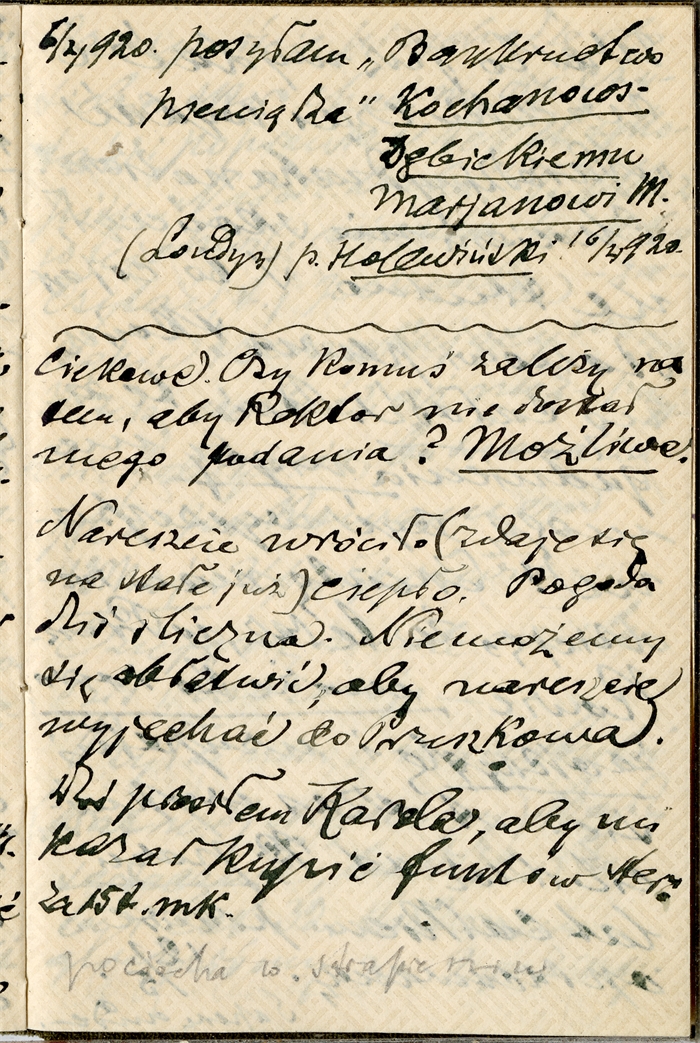 6/X 920. posyłam „Bankructwo
pieniądza" Kochanows-
Dębickiemu
Marjanowi M.
(Londyn) p. Hołowiński 16/X 920.
Ciekawe. Czy komuś zależy na
tem, aby Rektor nie dostał
mego podania? Możliwe.
Nareszcie wróciło (zdaje się
na stałe już) ciepło. Pogoda
dziś śliczna. Niemożemy
się obłatwić, aby nareszcie
wyjechać do Pruszkowa.
Dziś posłałem Karola, aby mi
kazał kupić funtów ster.
za 15 t. mk.
pociecha w strapieniu